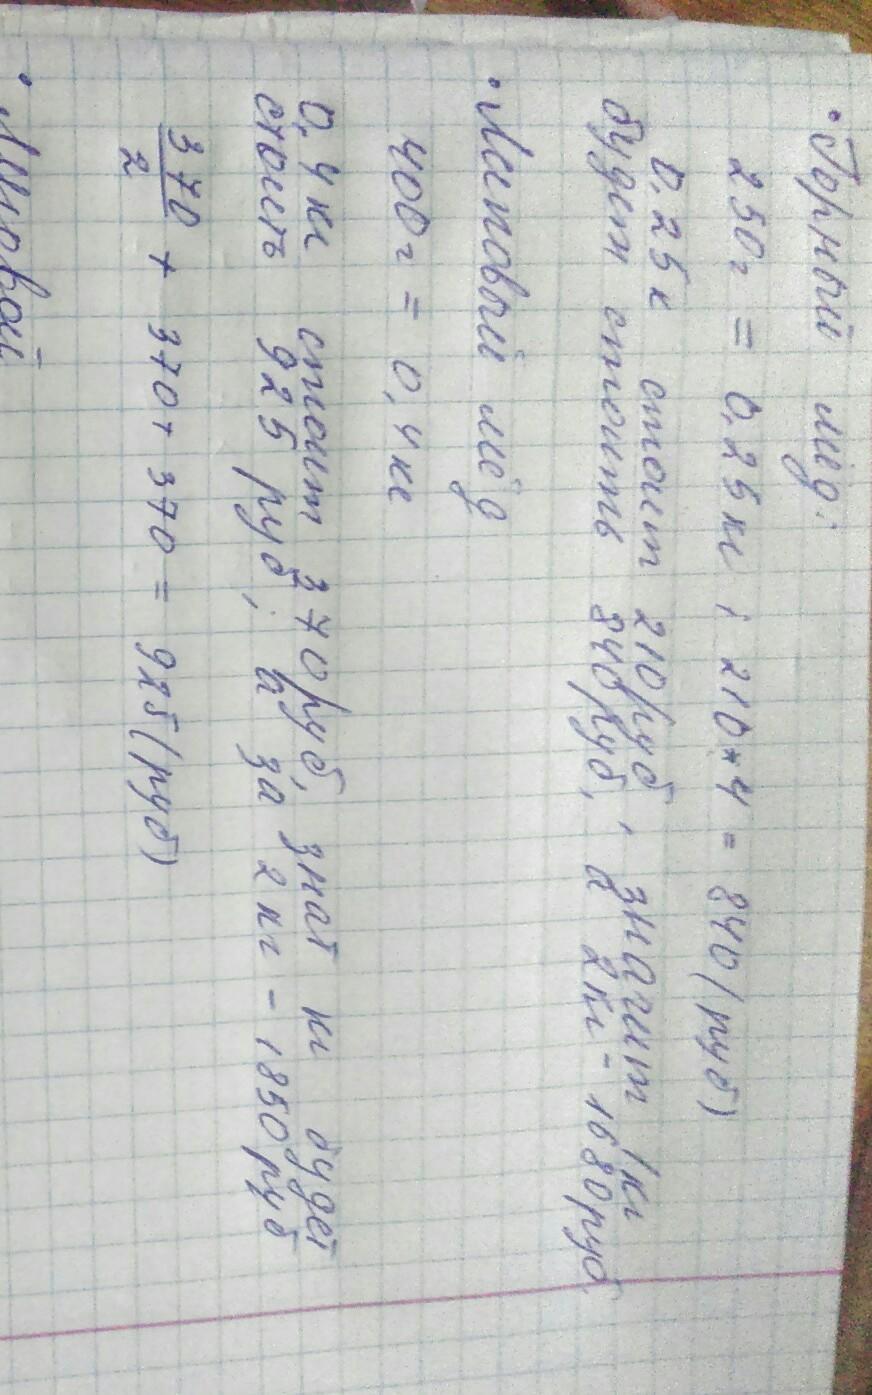 • Горный мёд:
250г = 0,25кг ; 210*4 = 840(руб)
0,25к стоит 210руб, значит 1кг
будет стоить 840руб, а 2кг - 1680руб.
• Лептовый мёд
400г = 0,4кг
0,4кг стоит 370руб, знач кг будет
стоить 925 руб; а за 2кг - 1850руб
370/2 + 370 + 370 = 925(руб)
• Липовой